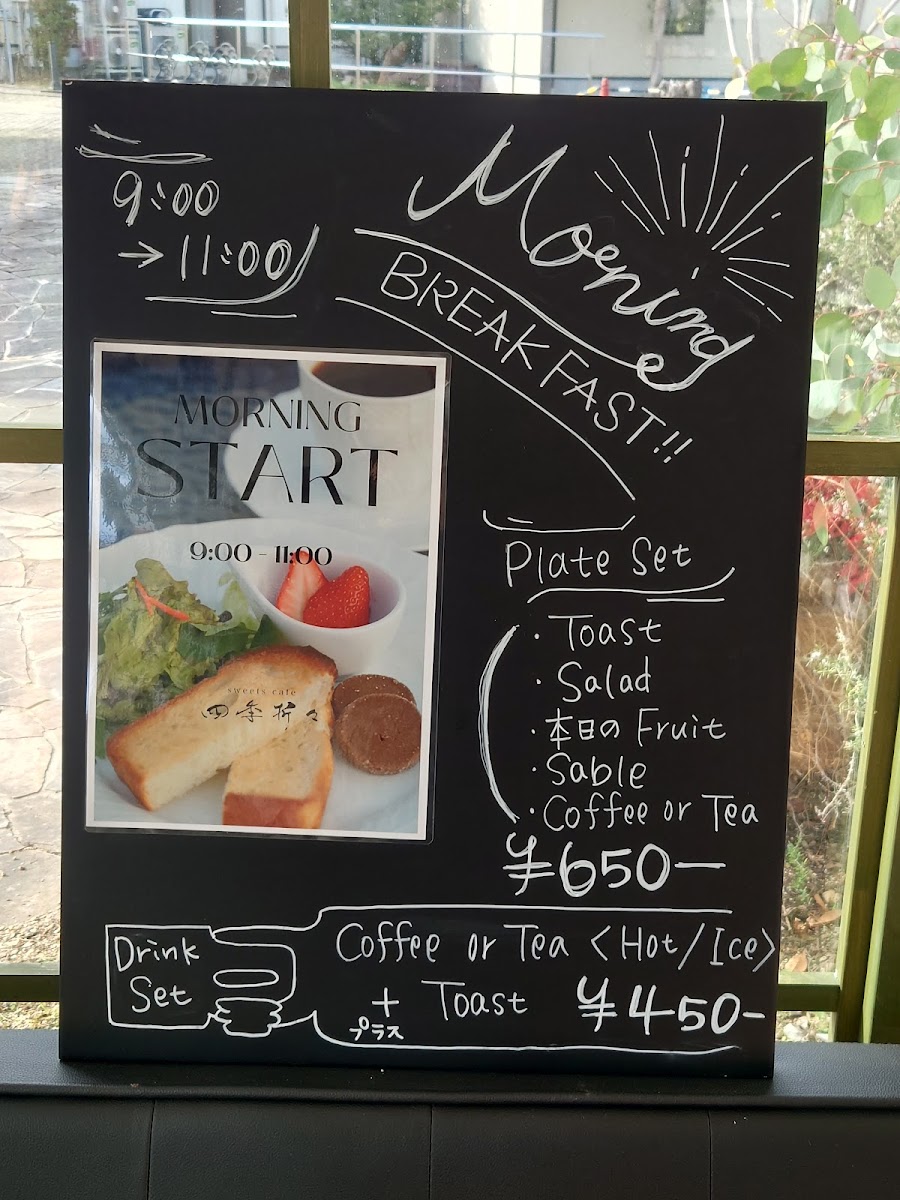 9:00
→11:00
Morning
BREAKFAST!!
MORNING
START
9:00 - 11:00
sweets cafe
四季折々
Plate Set
・Toast
・Salad
・本日の Fruit
・Sable
・Coffee or Tea
¥650ー
Drink
Set
Coffee or Tea <Hot/Ice>
+ Toast ¥450-
プラス